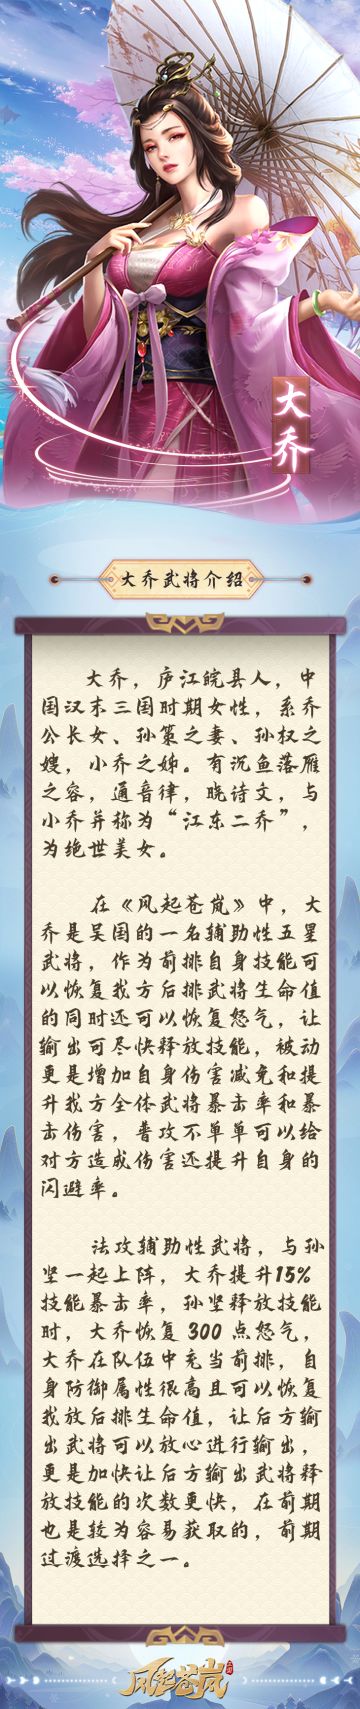 大乔
大乔武将介绍
大乔，庐江皖县人，中
国汉末三国时期女性，系乔
公长女、孙策之妻、孙权之
嫂，小乔之姊。有沉鱼落雁
之容，通音律，晓诗文，与
小乔并称为“江东二乔”，
为绝世美女。
在《风起苍岚》中，大
乔是吴国的一名辅助性五星
武将，作为前排自身技能可
以恢复我方后排武将生命值
的同时还可以恢复怒气，让
输出可尽快释放技能，被动
更是增加自身伤害减免和提
升我方全体武将暴击率和暴
击伤害，普攻不单单可以给
对方造成伤害还提升自身的
闪避率。
法攻辅助性武将，与孙
坚一起上阵，大乔提升15%
技能暴击率，孙坚释放技能
时，大乔恢复300点怒气，
大乔在队伍中充当前排，自
身防御属性很高且可以恢复
我放后排生命值，让后方输
出武将可以放心进行输出，
更是加快让后方输出武将释
放技能的次数更快，在前期
也是较为容易获取的，前期
过渡选择之一。
风起苍岚